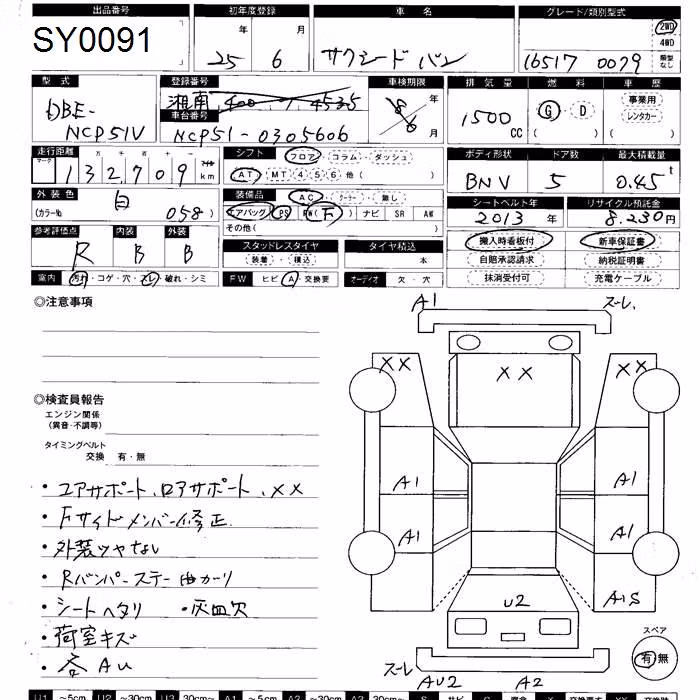 出品番号 初年度登録 車名 グレード/類別型式
SY0091 25年 6月 サクシード バン 16517 0079 2WD 4WD 類型なし
型式 登録番号 車検期限 排気量 燃料 車歴
DBE-NCP51V 湘南 400 年 月 1500cc G D ( ) 事業用 レンタカー ( )
車台番号
NCP51-0305606
走行距離 シフト フロア コラム ダッシュ ボディ形状 ドア数 最大積載量
マーク 十万 千 百 十 一 132709 km AT MT 4 5 6 他( ) BNV 5 0.45t
外装色 装備品 AC クーラー 無し シートベルト年 リサイクル預託金
白 (カラーNo. 058) エアバッグ PS PW(F) ナビ SR AW 2013年 8.230円
その他( )
参考評価点 内装 外装 スタッドレスタイヤ タイヤ積込 搬入時看板付 新車保証書
R B B 装着・積込 本 自賠承認請求 納税証明書
室内 汚れ・コゲ・穴・スレ・破れ・シミ FW ヒビ・A・交換要 オーディオ 欠・穴 抹消受付可 充電ケーブル
◎注意事項
A1 スーレ.
XX XX XX
◎検査員報告
エンジン関係
(異音・不調等)
タイミングベルト
交換 有・無
A1 A1
A1 A1
・コアサポート、ロアサポート、XX
・Fサイドメンバー修正
・外装ツヤなし
・Rバンパーステー曲カーリ
・シートヘタリ ・灰皿欠
・荷室キズ
・各AU
U2 A1S
スペア
有 無
スーレ AU2 A2
U1 ~5cm U2 ~30cm U3 30cm~ A1 ~5cm A2 ~30cm A3 30cm~ S サビ C 腐食 X 交換要 XX 交換跡